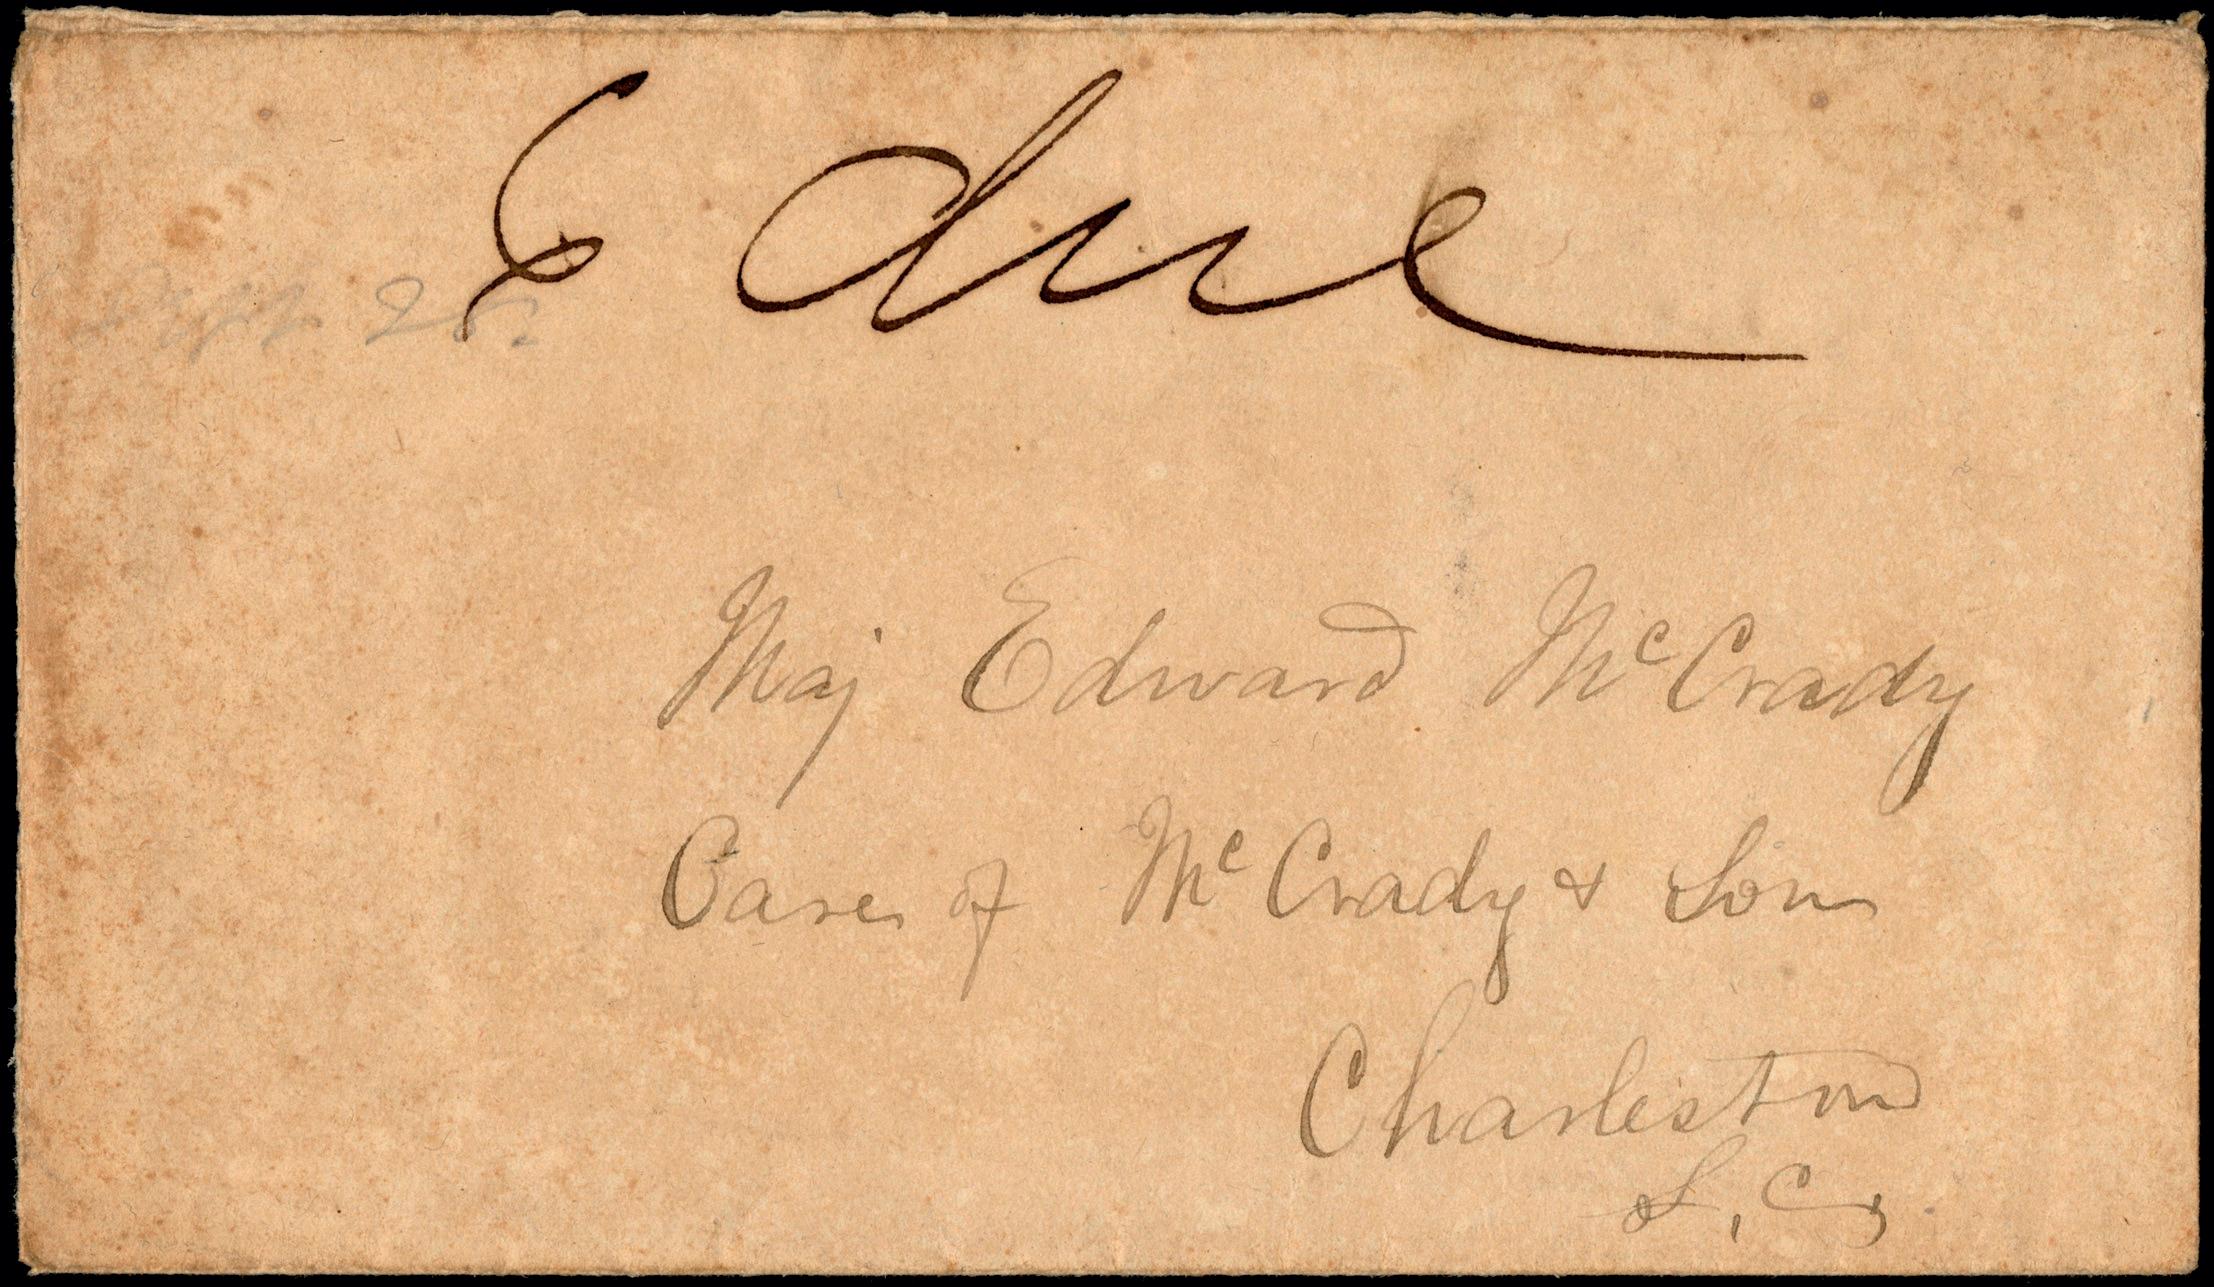 6 due
Maj Edward McCrady
Care of McCrady & Son
Charleston
S. C,